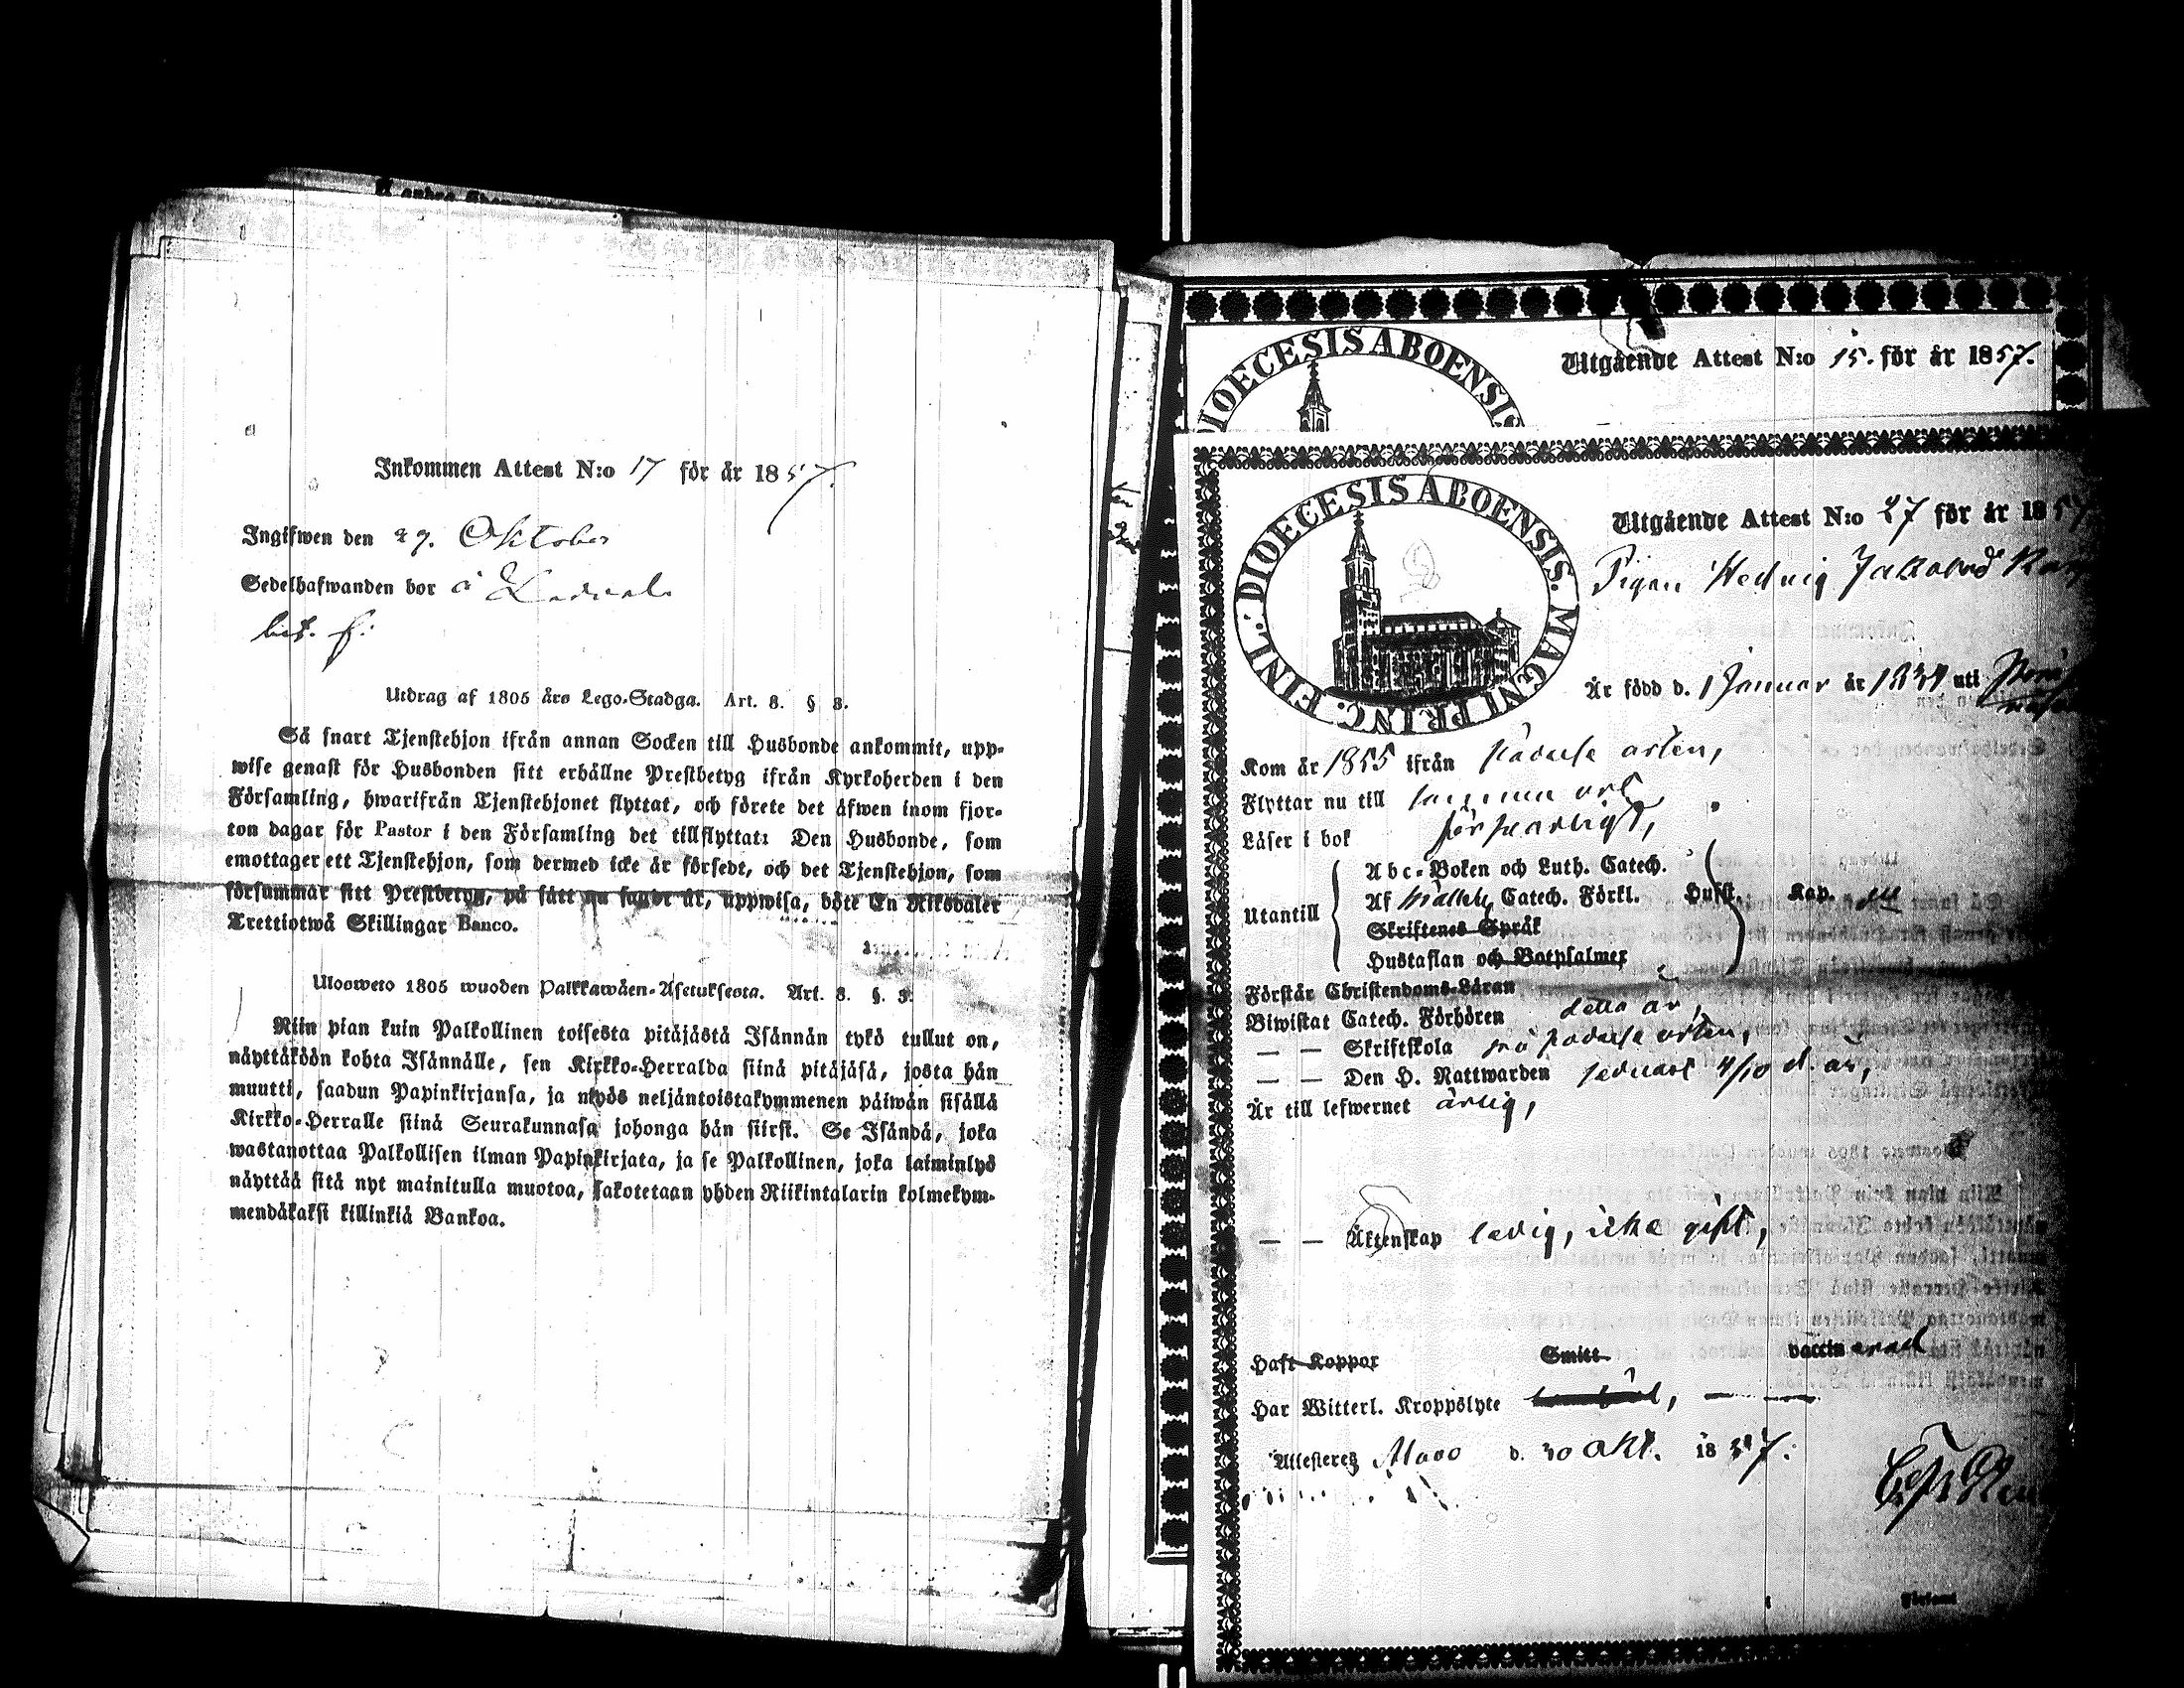 Inkommen Attest N:o 17 för år 1857.
Ingifwen den 29. Oktober
Sedelhafwanden bor å
Utdrag af 1805 års Lego-Stadga. Art. 8. § 3.
Så snart Tjenstehjon ifrån annan Socken till Husbonde ankommit, upp-
wise genast för Husbonden sitt erhållne Prestbetyg ifrån Kyrkoherden i den
Församling, hwarifrån Tjenstehjonet flyttat, och förete det äfwen inom fjor-
ton dagar för Pastor i den Församling det tillflyttat: Den Husbonde, som
emottager ett Tjenstehjon, som dermed icke är försedt, och det Tjenstehjon, som
försummar sitt Prestbetyg, på sätt nu sagdt är, uppwisa, böte En Riksdaler
Trettiotwå Skillingar Banco.
Ulosweto 1805 wuoden Palkkawäen-Asetuksesta. Art. 8. §. 3.
Niin pian kuin Palkollinen toisesta pitäjästä Isännän tykö tullut on,
näyttäköön kohta Isännälle, sen Kirkko-Herralda siinä pitäjäsä, josta hän
muutti, saadun Papinkirjansa, ja myös neljäntoistakymmenen päiwän sisällä
Kirkko-Herralle siinä Seurakunnasa johonga hän siirsi. Se Isändä, joka
wastanottaa Palkollisen ilman Papinkirjata, ja se Palkollinen, joka laiminlyö
näyttää sitä nyt mainitulla muotoa, sakotetaan yhden Riikintalarin kolmekym-
mendäkaksi killinkiä Bankoa.
DIOECESIS ABOENSIS
Utgående Attest N:o 15. för år 1857.
DIOECESIS ABOENSIS. MAGNI PRINC. FINL.:
Utgående Attest N:o 27 för år 1857
Pigan Hedvig
Är född d. 1 Januar år uti
Kom år 1855 ifrån födelse orten,
Flyttar nu till samma ort
Läser i bok försvarligt,
Utantill
Abc-Boken och Luth. Catech.
Af Catech. Förkl. Hufst. Kap.
Skriftenes Språk
Hustaflan och Botpsalmer
Förstår Christendoms-Läran
Biwistat Catech. Förhören detta år,
— — Skriftskola på födelse orten,
— — Den H. Nattwarden sednast 4/10 d. år,
Är till lefwernet ärlig,
— — Äktenskap ledig, icke gift,
Haft Koppor Smitt vaccinerad
Har Witterl. Kroppslyte
Attesterer Mavo d. 30 Okt. 1857.